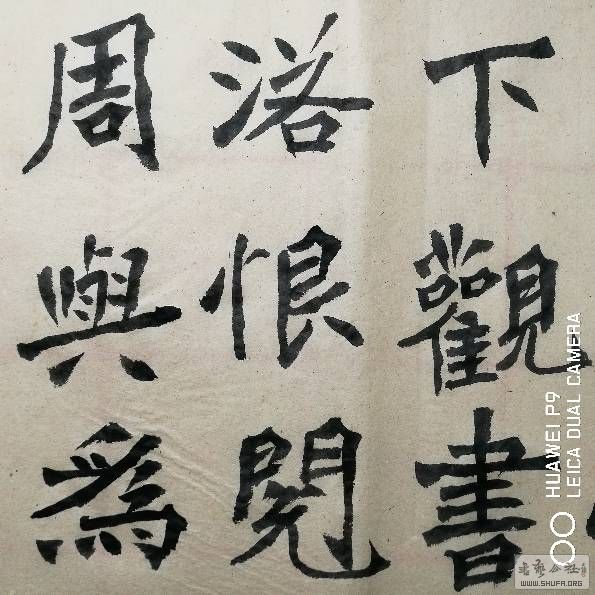 下觀書
洛恨閱
周與為
HUAWEI P9
LEICA DUAL CAMERA
WWW.SHUFA.ORG